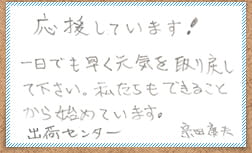 応援しています!
一日でも早く元気を取り戻し
て下さい。私たちもできること
から始めています。
出荷センター